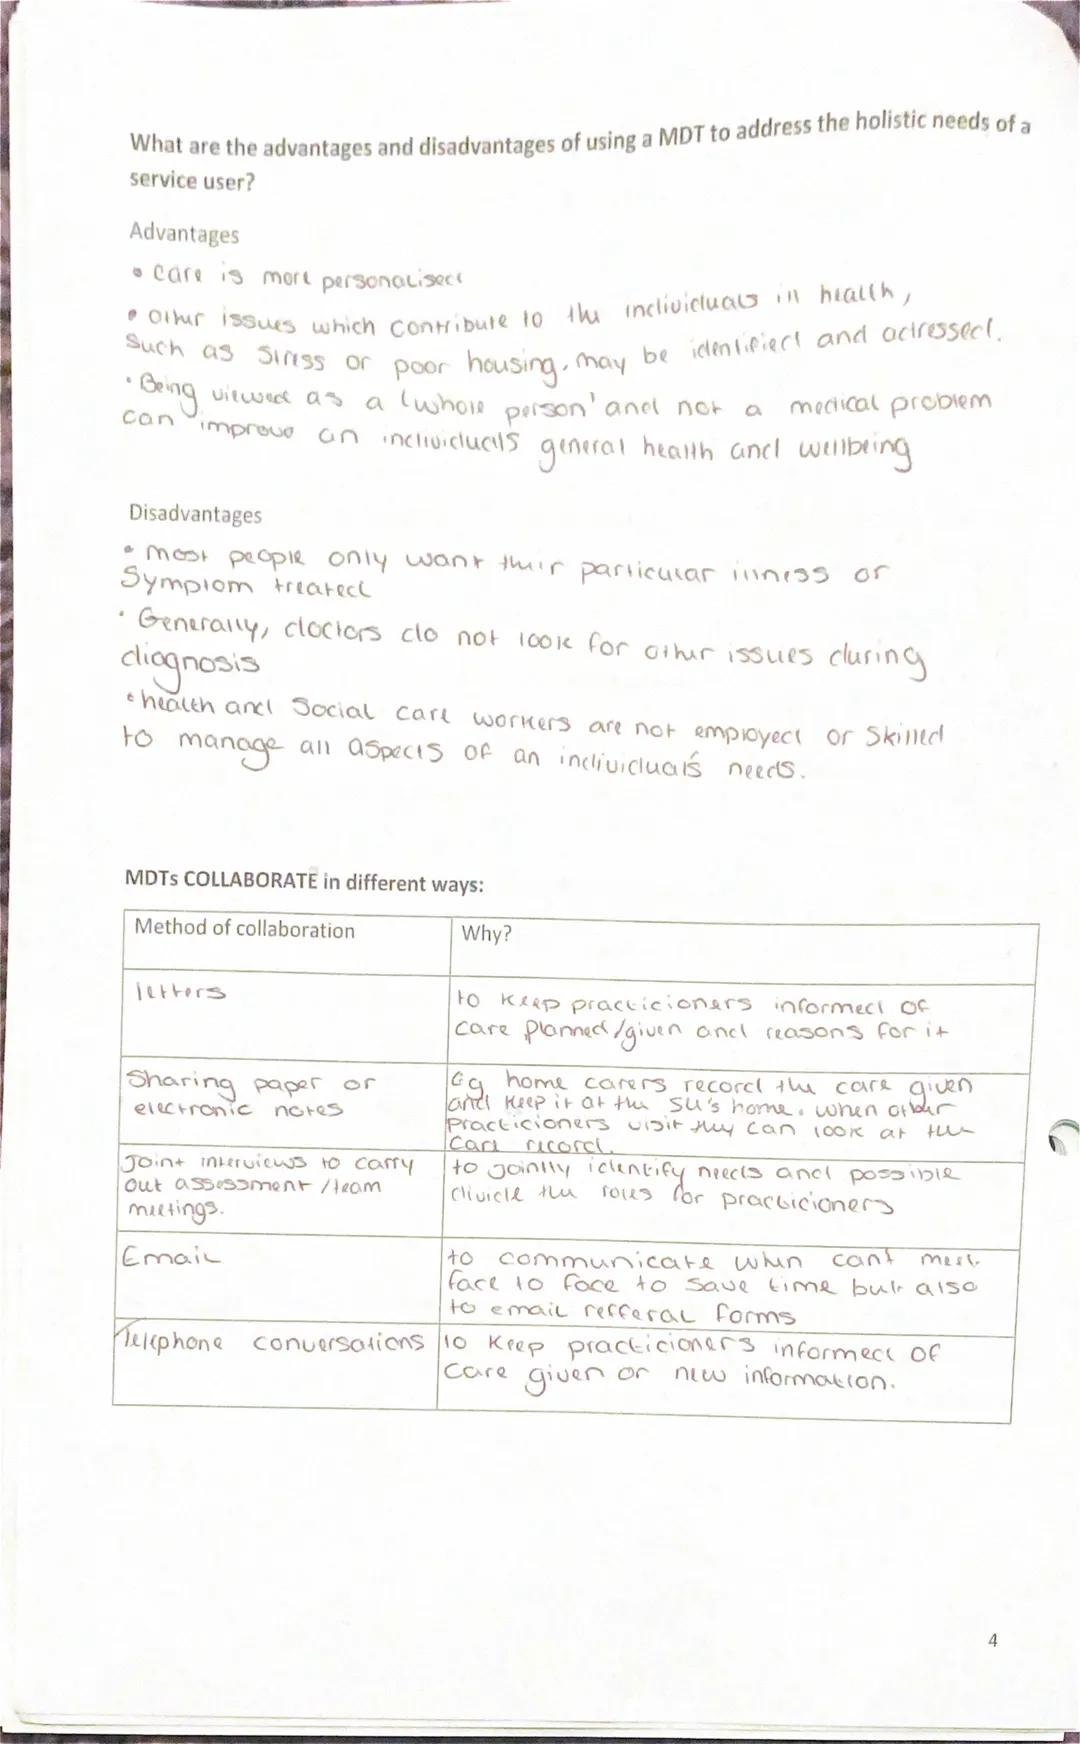 What are the advantages and disadvantages of using a MDT to address the holistic needs of a
service user?
Advantages
• Care is more personalised
• Other issues which contribute to the individuals in health,
Such as stress or poor housing, may be identified and adressed.
• Being viewed as a 'whole person' and not a medical problem
can improve an individuals general health and wellbeing
Disadvantages
• most people only want their particular illness or
Symptom treated
• Generally, doctors do not look for other issues during
diagnosis
• health and Social care workers are not employed or Skilled
to manage all aspects of an individual's needs.
MDTs COLLABORATE in different ways:
Method of collaboration
Why?
letters
to keep practicioners informed of
care planned/given and reasons for it
Sharing paper or
electronic notes
Eg home carers record the care given
and keep it at the SU's home. when other
practicioners visit they can look at the
Care record.
Joint interviews to carry
out assessment /team
meetings.
to jointly identify needs and possible
divide the roles for practicioners
Email
to communicate when can't meet
face to face to save time but also
to email refferal forms
Telephone conversations
to keep practicioners informed of
care given or new information.
4